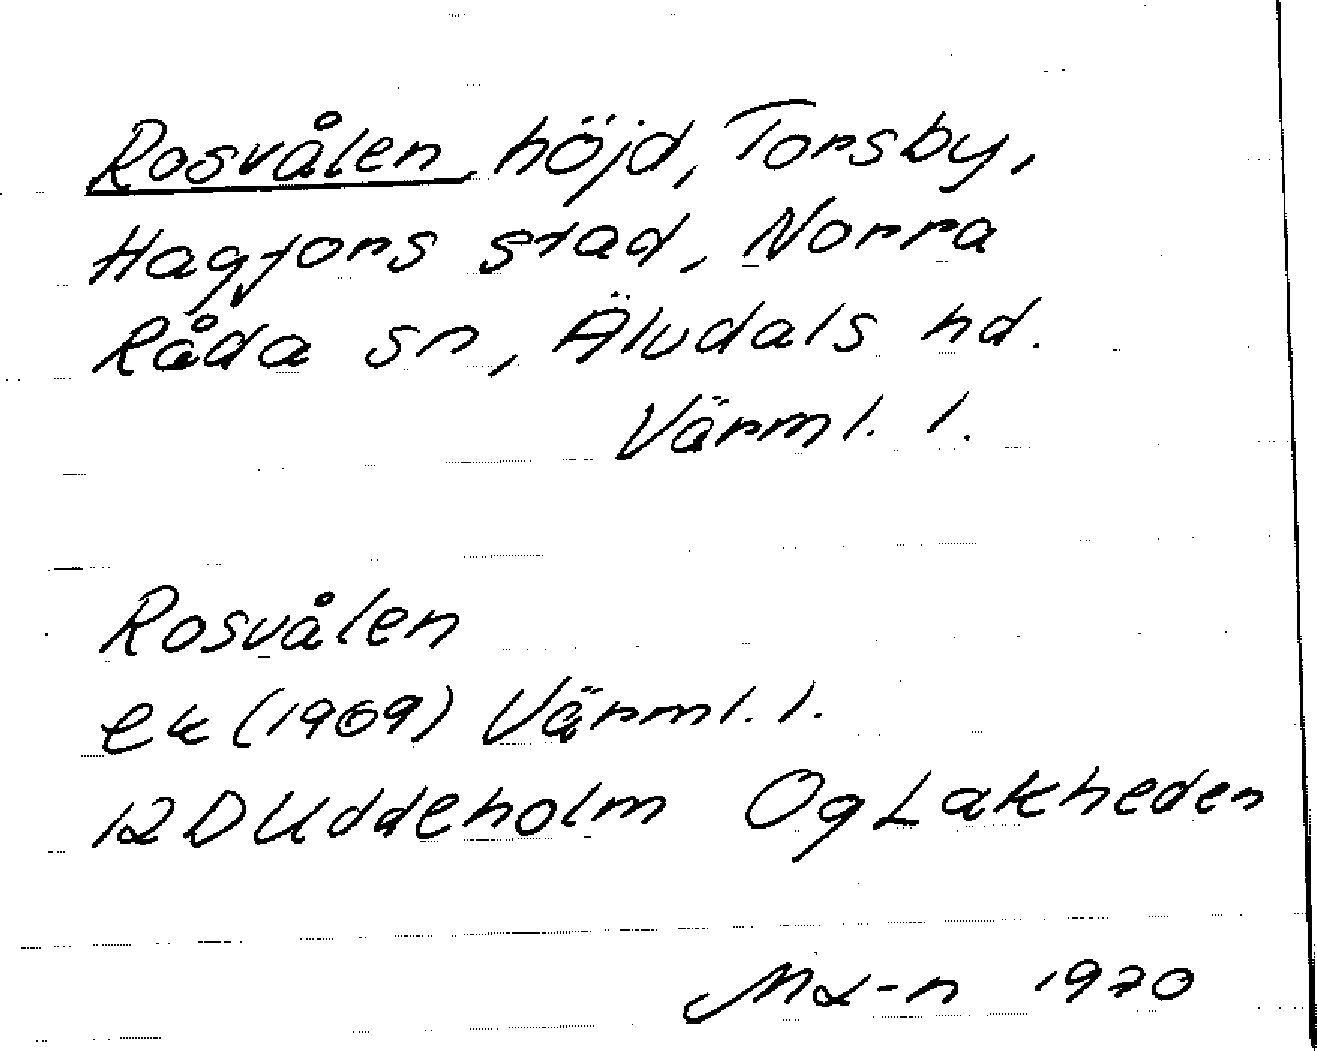 Rosvålen höjd, Torsby,
Hagfors stad, Norra
Råda sn, Älvdals hd.
Värml. l.
Rosvålen
ek (1969) Värml. l.
12D Uddeholm Og Lakheden
1970